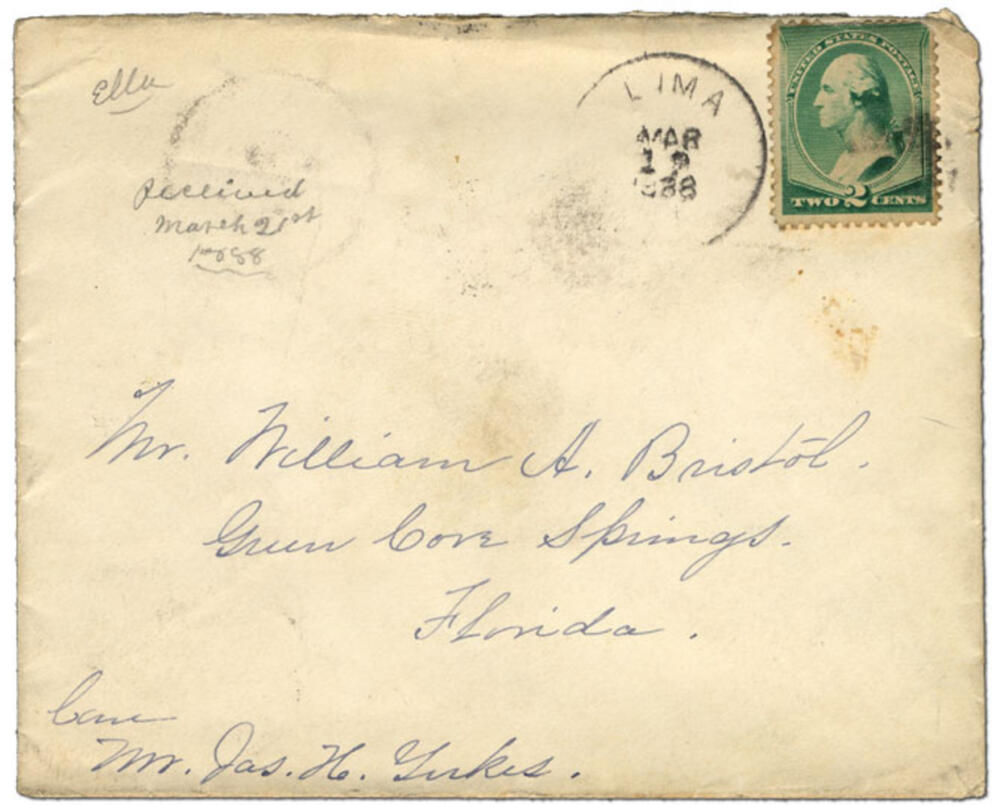 Ella
received
March 21st
1888
LIMA
MAR
1888
UNITED STATES POSTAGE
TWO 2 CENTS
Mr. William A. Bristol.
Green Cove Springs.
Florida.
Care
Mr. Jas. H.